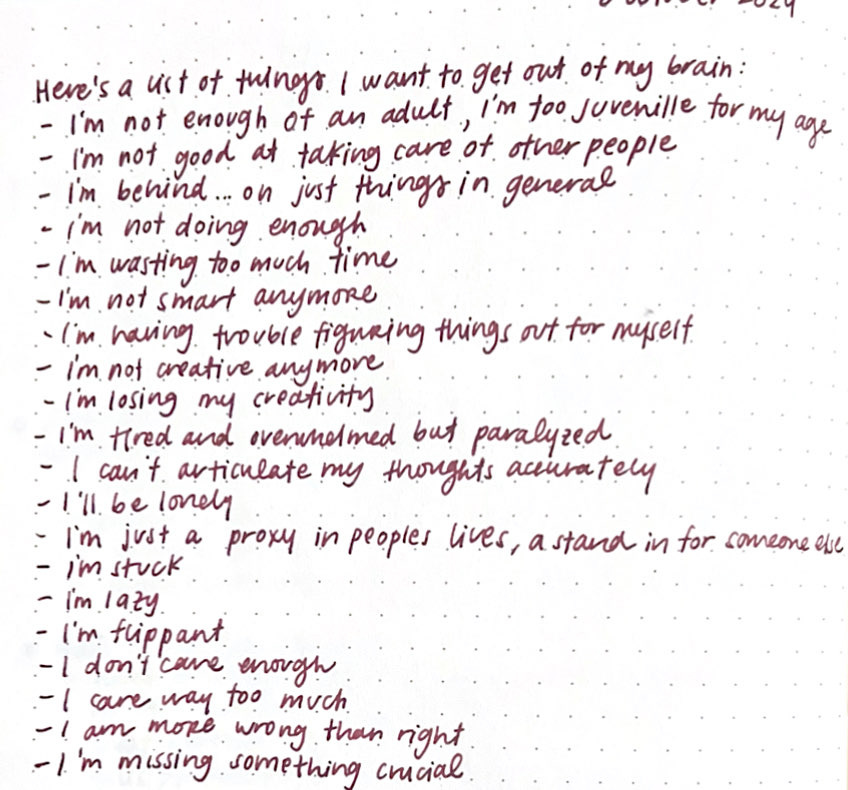 2024
Here's a list of things I want to get out of my brain:
- I'm not enough of an adult, I'm too juvenille for my age
- I'm not good at taking care of other people
- I'm behind... on just things in general
- I'm not doing enough
- I'm wasting too much time
- I'm not smart anymore
- I'm having trouble figuring things out for myself
- I'm not creative anymore
- I'm losing my creativity
- I'm tired and overwhelmed but paralyzed
- I can't articulate my thoughts accurately
- I'll be lonely
- I'm just a proxy in peoples lives, a stand in for someone else
- I'm stuck
- I'm lazy
- I'm flippant
- I don't care enough
- I care way too much
- I am more wrong than right
- I'm missing something crucial